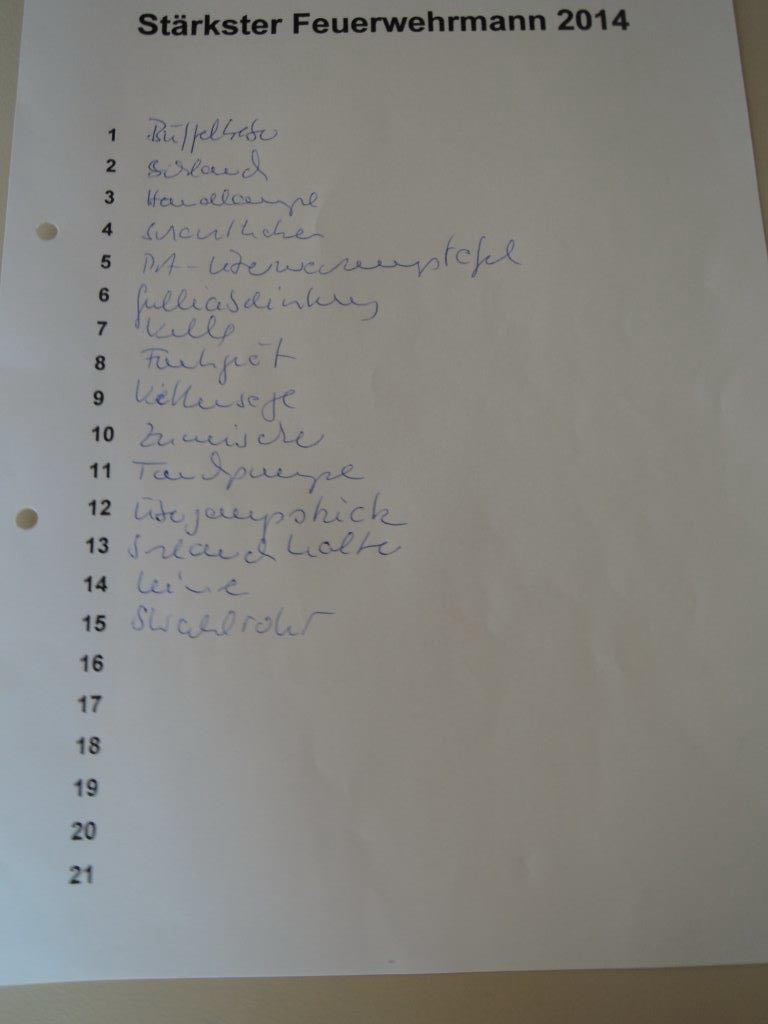 Stärkster Feuerwehrmann 2014
1 Büffelhebe
2
3 Handlampe
4
5 PA-Überwachungstafel
6
7 Kelle
8 Funkgrät
9 Kettensäge
10 Zumischer
11 Tauchpumpe
12 Übergangsstück
13 Schlauchhalter
14 Leine
15 Strahlrohr
16
17
18
19
20
21